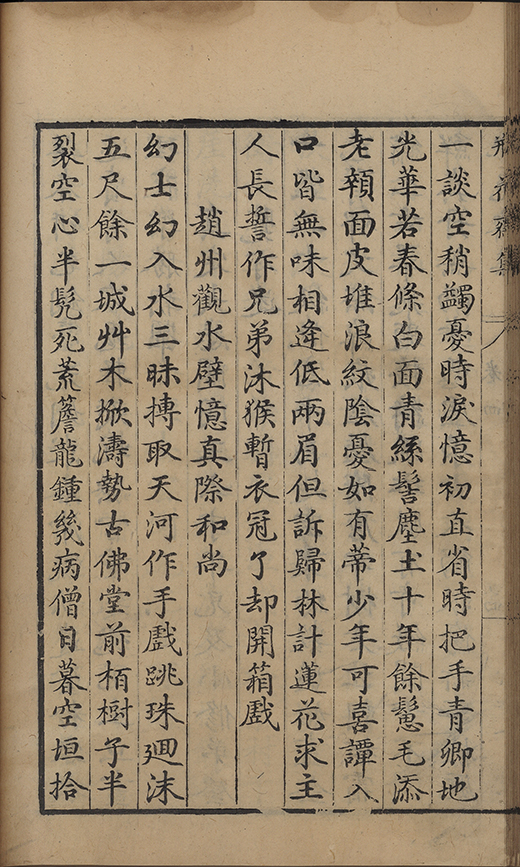 一談空稍蠲憂時淚憶初直省時把手青卿地
光華若春條白面青絲髻塵土十年餘鬢毛添
老頛面皮堆浪紋陰憂如有蒂少年可喜譚入
口皆無味相逢低兩眉但訴歸林計蓮花求主
人長誓作兄弟沐猴暫衣冠了却開箱戲
趙州觀水壁憶真際和尚
幻士幻入水三昧摶取天河作手戲跳珠迴沫
五尺餘一城艸木掀濤勢古佛堂前栢樹子半
裂空心半髠死荒簷龍鍾幾病僧日暮空垣拾